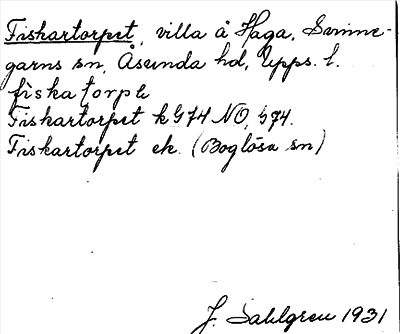 Fiskartorpet, villa å Haga, Svinne-
garns sn, Åsunda hd, Upps. l.
fiskatorpe
Fiskartorpet k G74 NO, S74.
Fiskartorpet ek. (Boglösa sn)
J. Sahlgren 1931